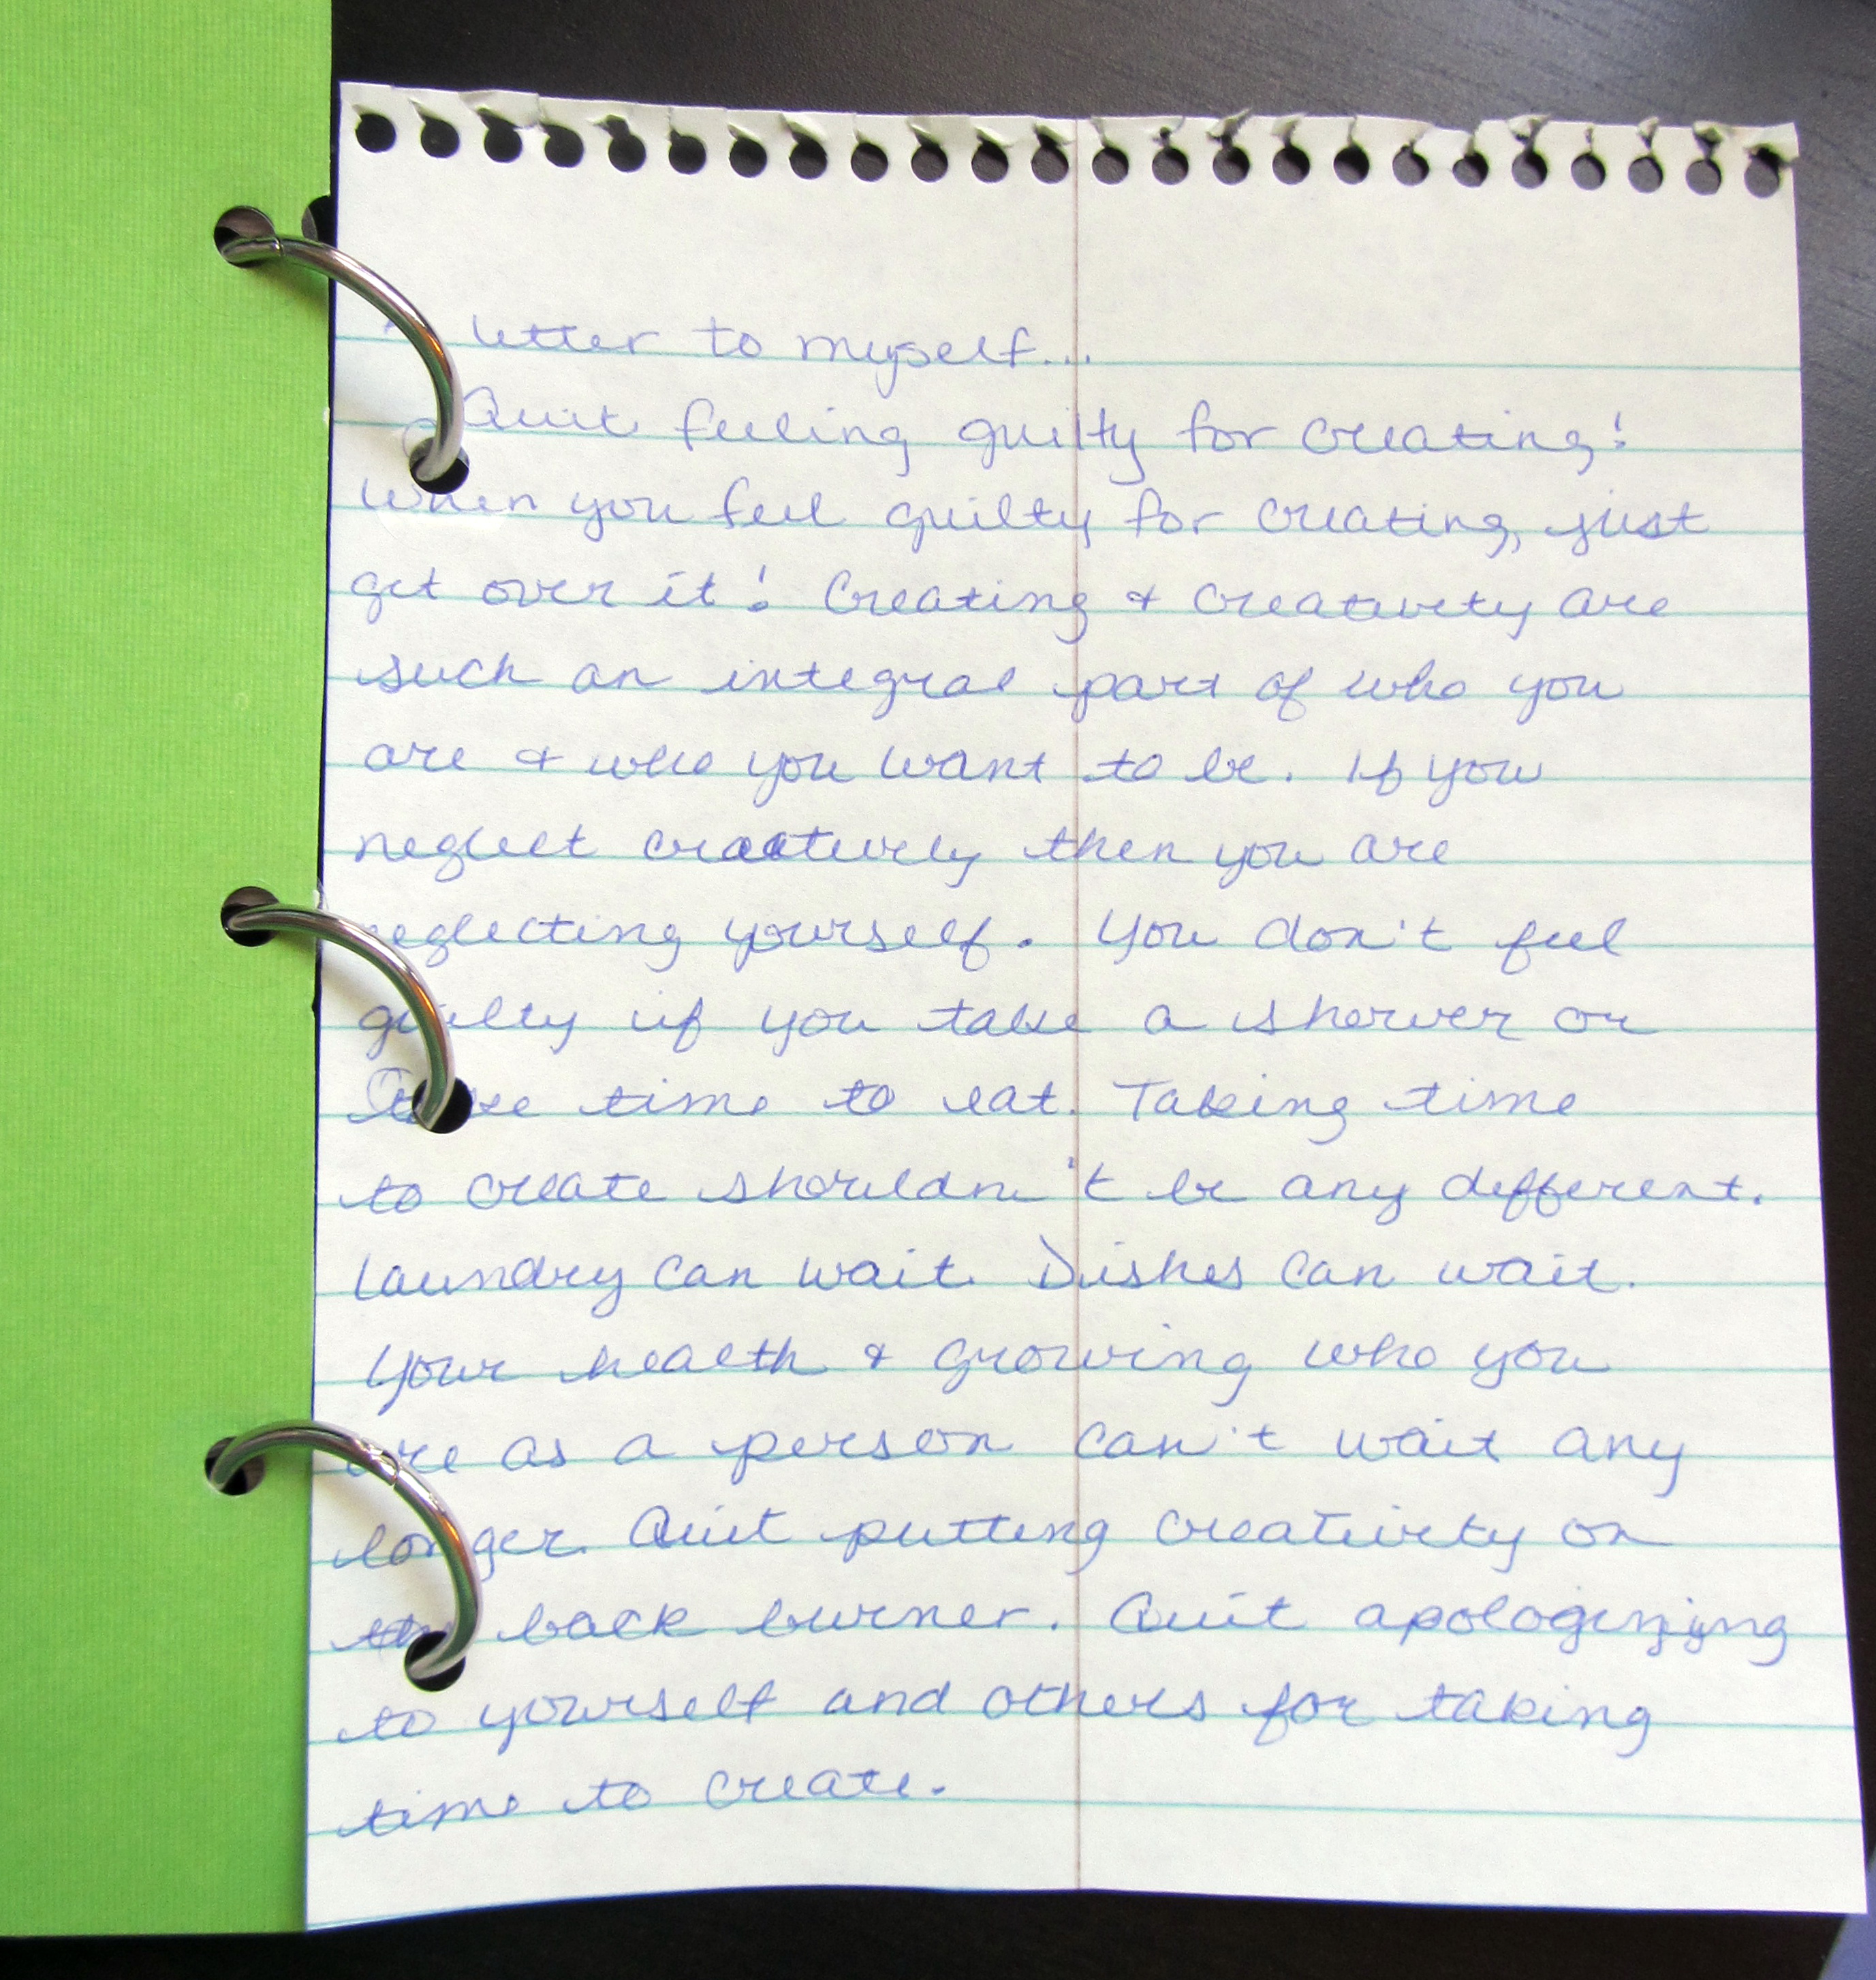 A letter to myself...
Quit feeling guilty for creating!
When you feel guilty for creating, just
get over it! Creating & creativity are
such an integral part of who you
are & who you want to be. If you
neglect creatively then you are
neglecting yourself. You don't feel
guilty if you take a shower or
take time to eat. Taking time
to create shouldn't be any different.
Laundry can wait. Dishes can wait.
Your health & growing who you
are as a person can't wait any
longer. Quit putting creativity on
the back burner. Quit apologizing
to yourself and others for taking
time to create.